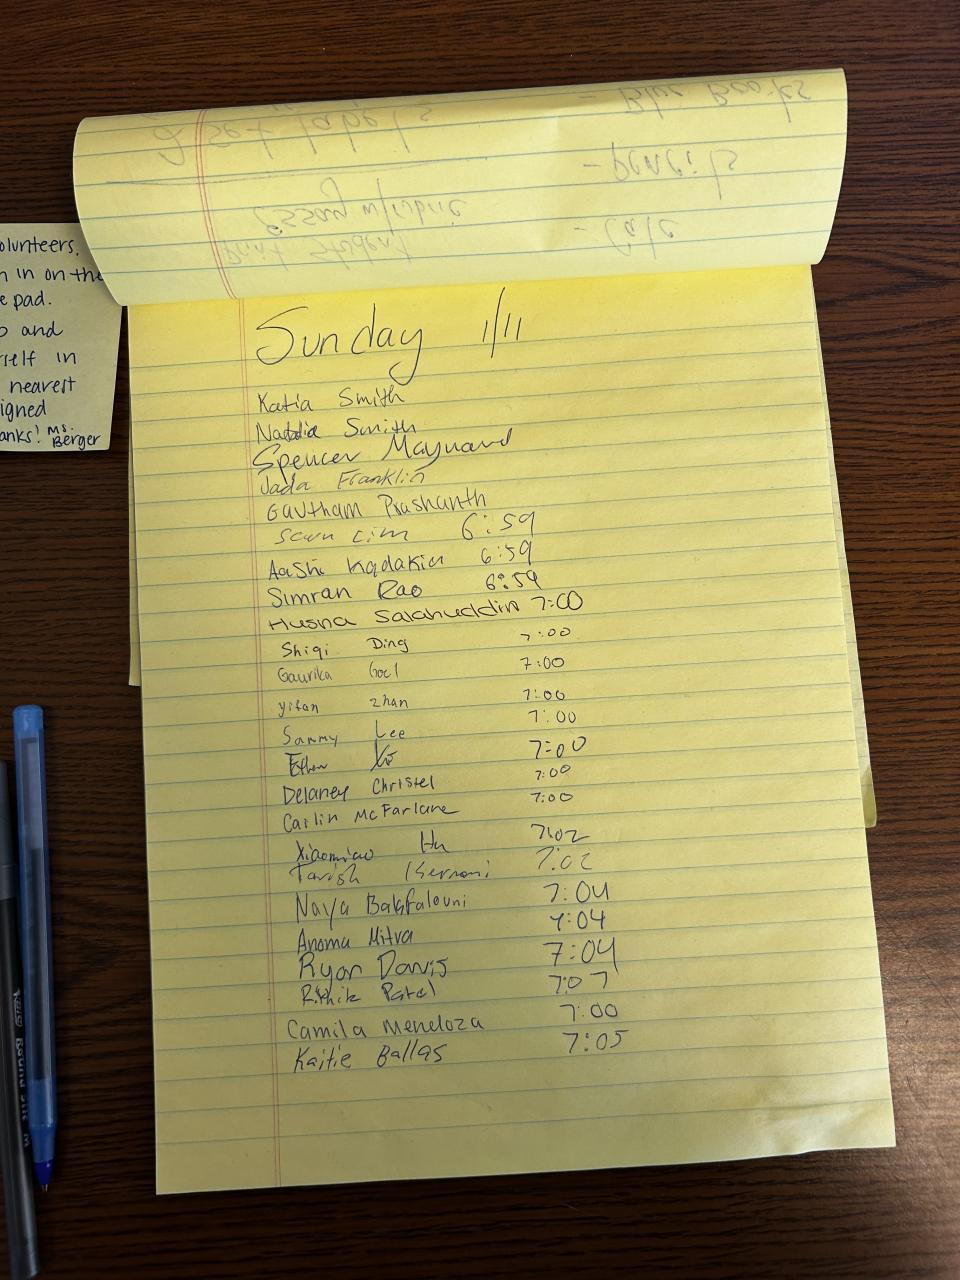 olunteers,
n in on the
e pad.
o and
rself in
nearest
igned
anks! Ms. Berger
2 set labels
- Blue Books
- Pencils
Essay w/rubric
Print Student
- Calc
Sunday 1/11
Katia Smith
Naddia Smith
Spencer Maynard
Jada Franklin
Gautham Prashanth
Sean Lim 6:59
Aashi Kadakia 6:59
Simran Rao 6:59
Husna Salahuddin 7:00
Shiqi Ding 7:00
Gaurika Goel 7:00
Yifan Zhan 7:00
Sammy Lee 7:00
Ethan 7:00
Delaney Christel 7:00
Cailin McFarlane 7:00
Xiaomiao Hu 7:02
Tavish 7:02
Naya 7:04
Anoma Mitra 7:04
Ryan Davis 7:04
Rithik Patel 7:07
Camila Mendoza 7:00
Kaitie Ballas 7:05